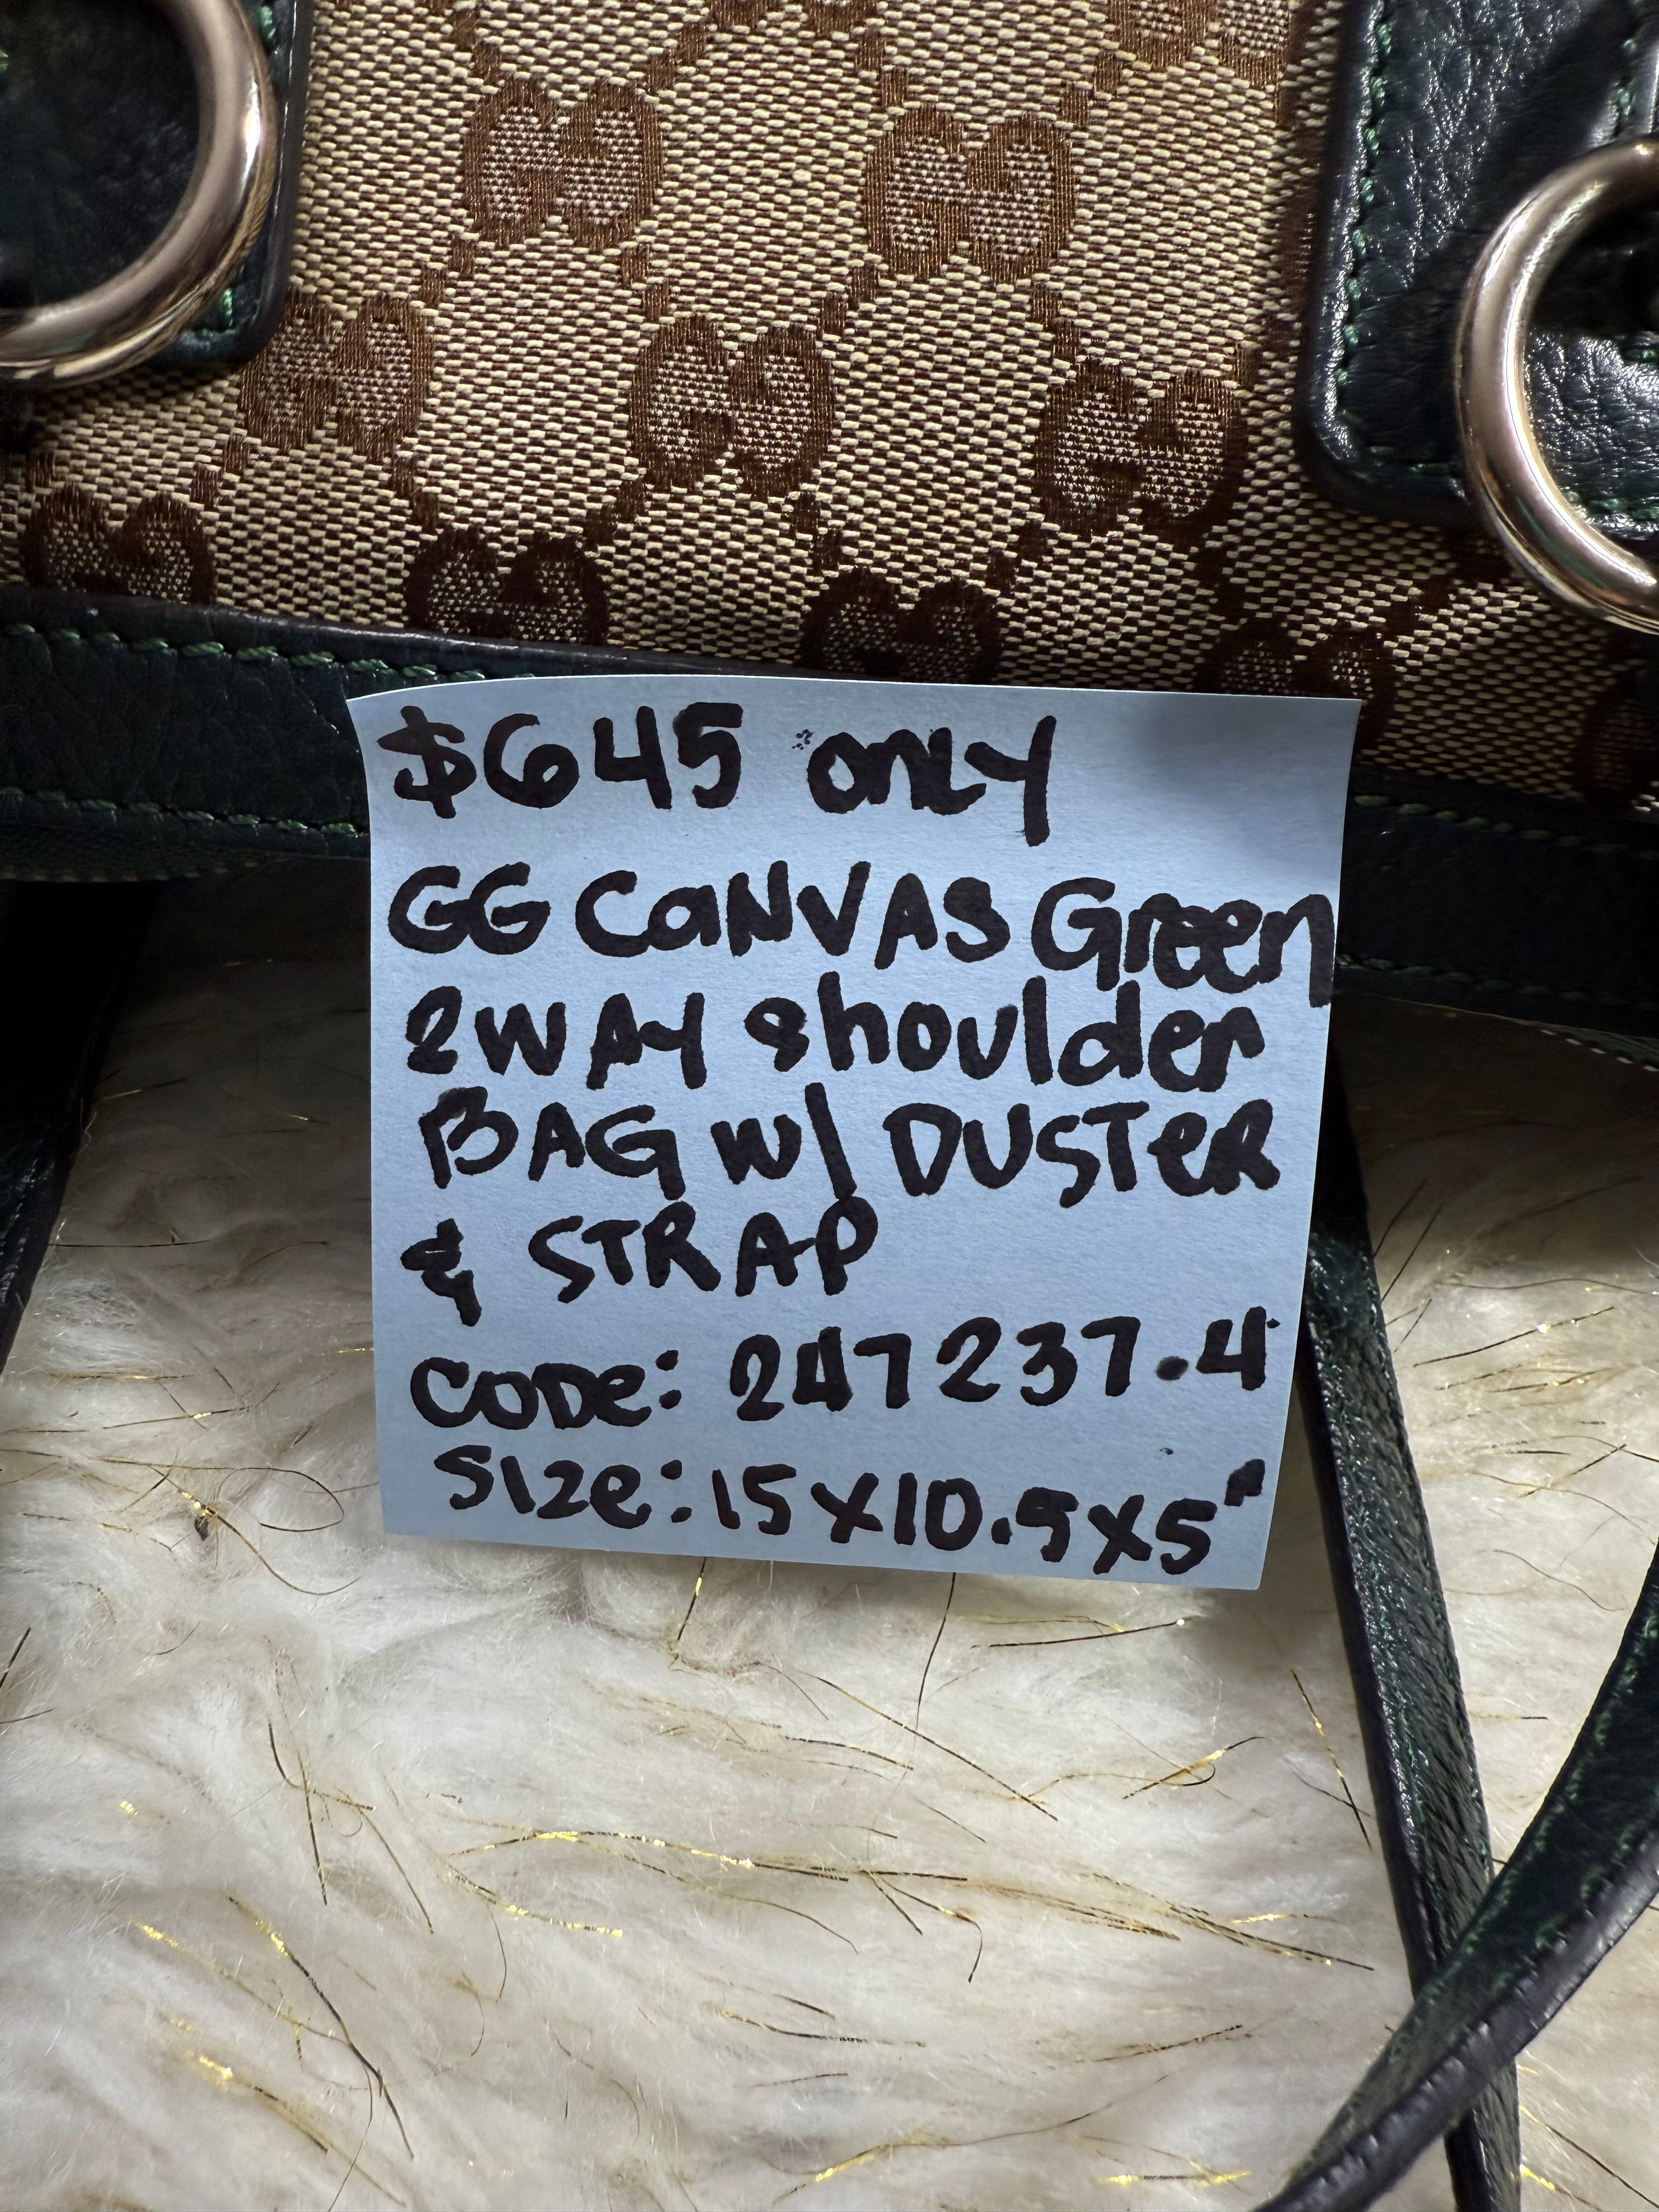 $645 only
GG CANVAS Green
2WAY shoulder
BAG W/ DUSTER
& STRAP
CODe: 247237.4
Size: 15x10.5x5"